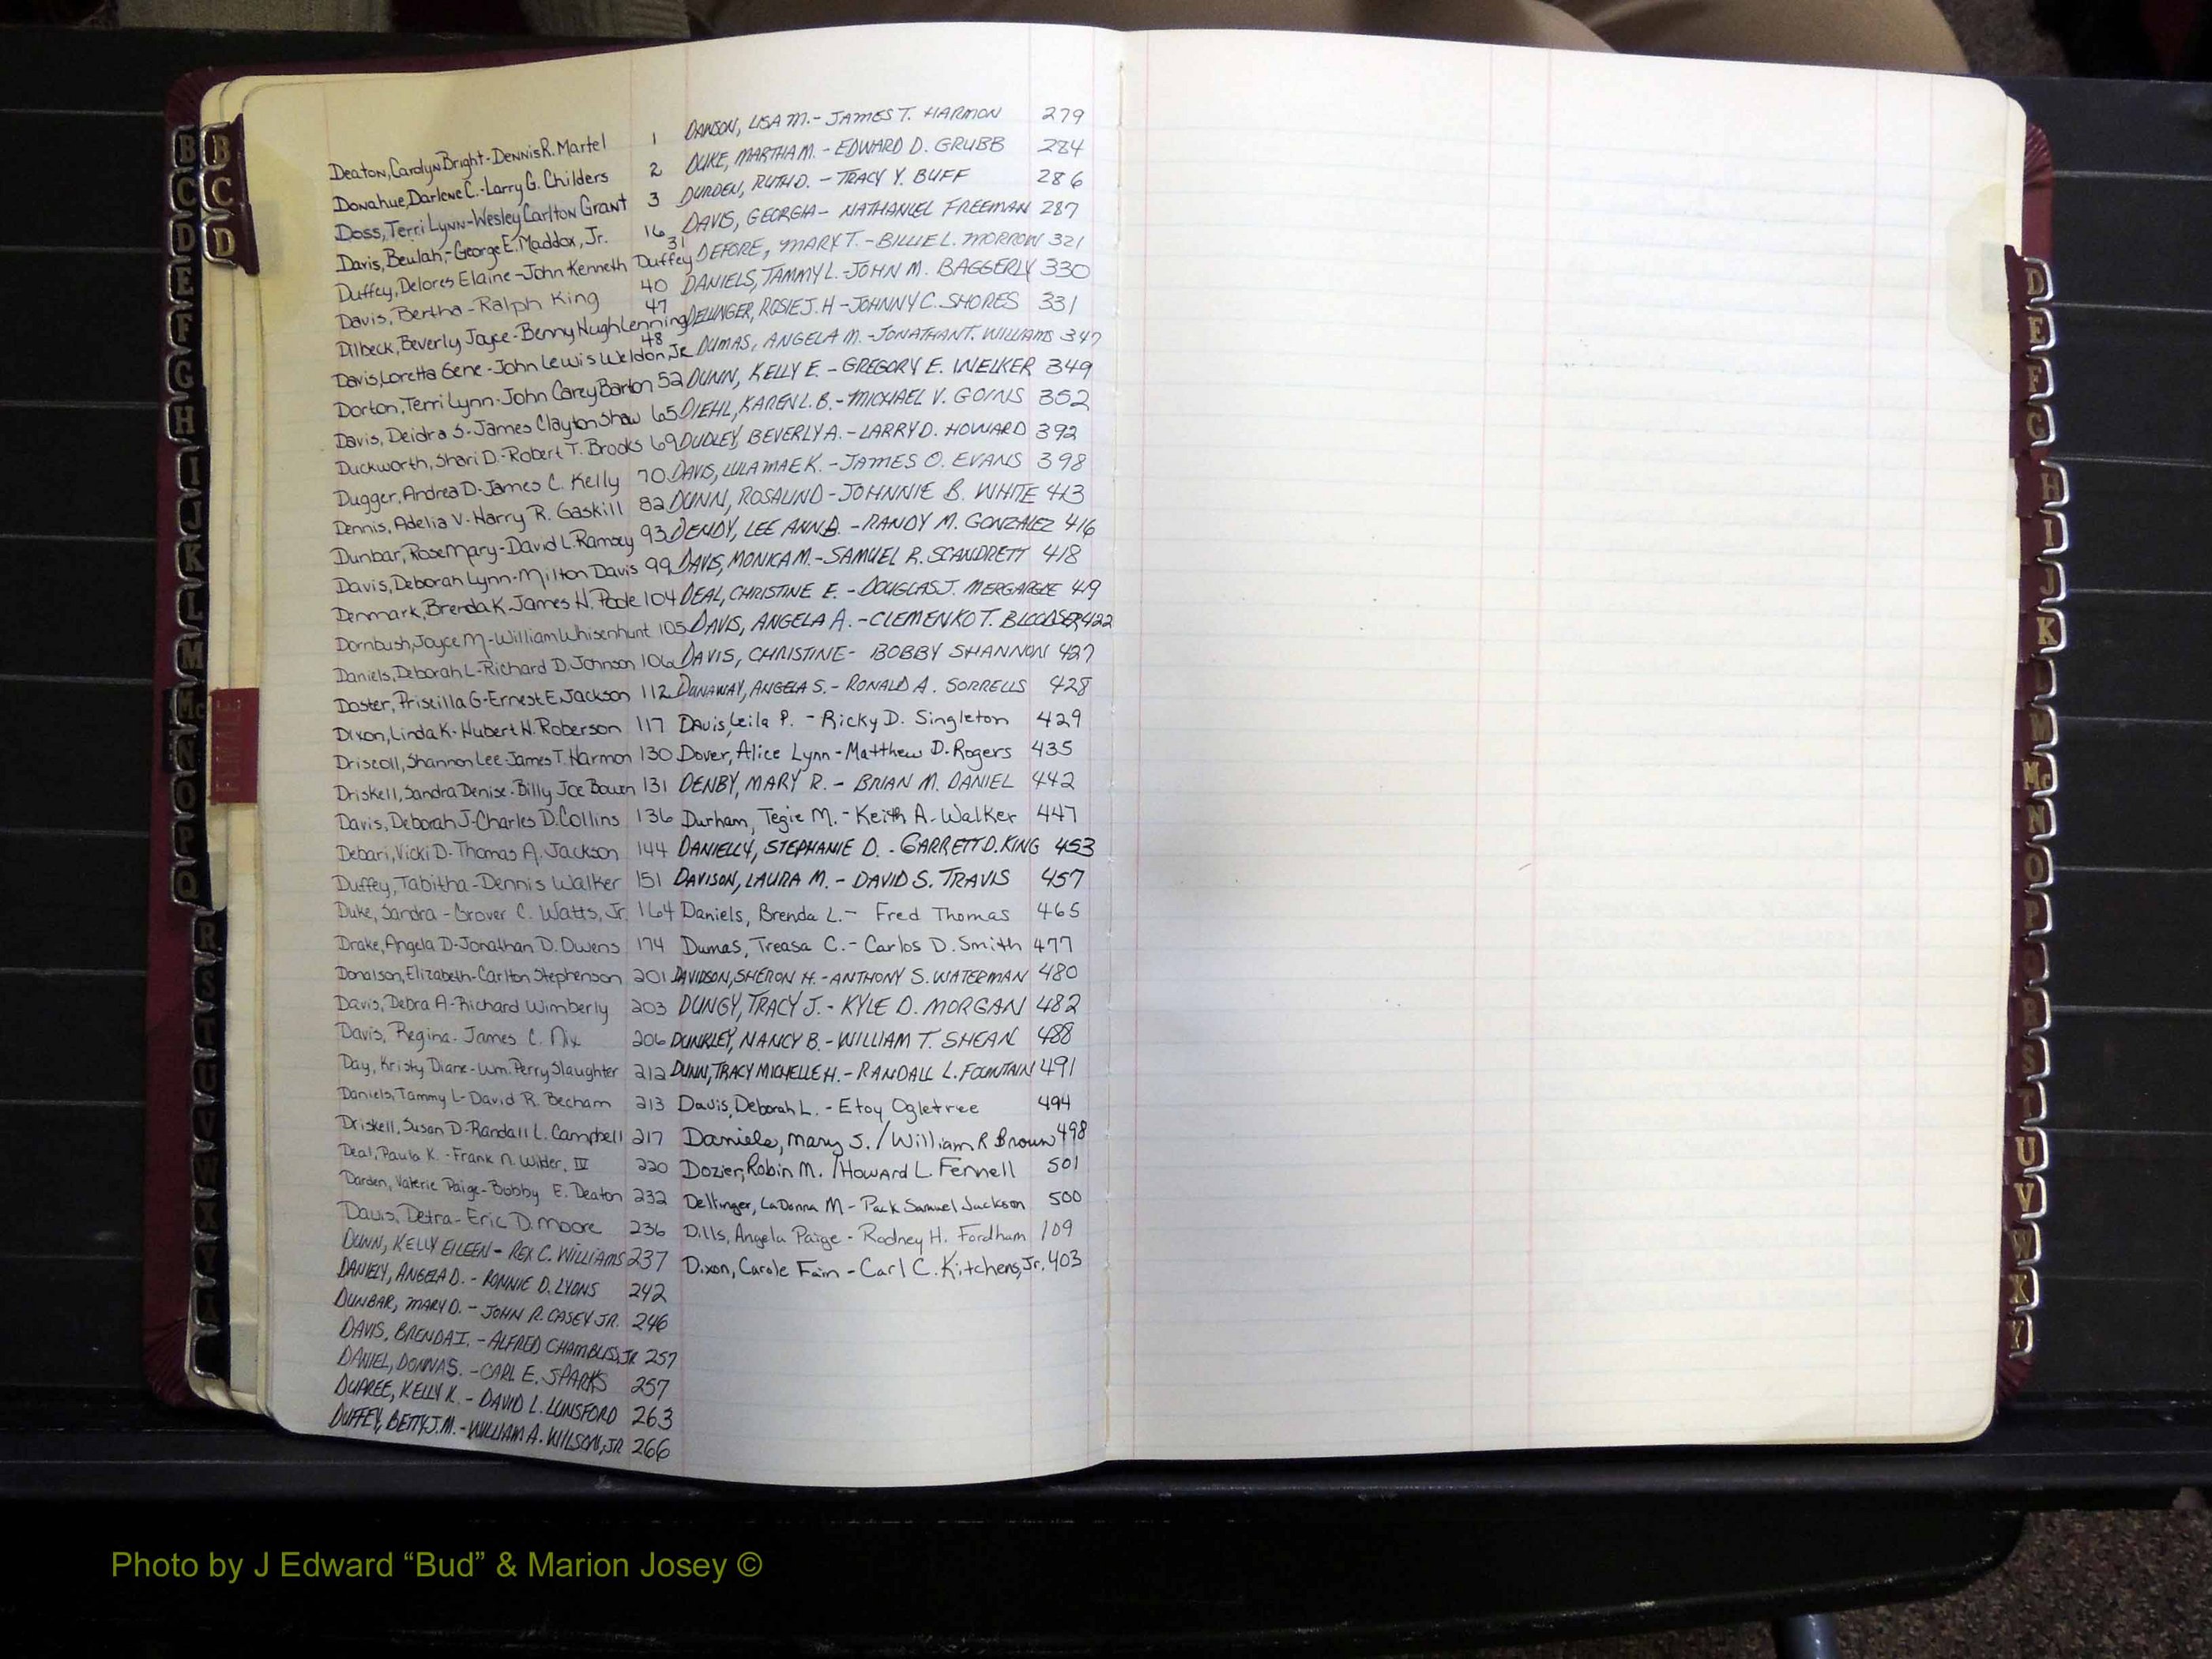 Deaton, Carolyn Bright - Dennis R. Martel 1
Donahue, Darlene C. - Larry G. Childers 2
Doss, Terri Lynn - Wesley Carlton Grant 3
Davis, Beulah - George E. Maddox, Jr. 16
Duffey, Delores Elaine - John Kenneth Duffey 31
Davis, Bertha - Ralph King 40
Dilbeck, Beverly Joyce - Benny Hugh Lenning 47
Davis, Loretta Gene - John Lewis Weldon, Jr. 48
Dorton, Terri Lynn - John Carey Barton 52
Davis, Deidra S - James Clayton Shaw 65
Duckworth, Shari D. - Robert T. Brooks 69
Dugger, Andrea D - James C. Kelly 70
Dennis, Adelia V - Harry R. Gaskill 82
Dunbar, Rosemary - David L. Ramsey 93
Davis, Deborah Lynn - Milton Davis 99
Denmark, Brenda K - James H. Poole 104
Dornbush, Joyce M - William Whisenhunt 105
Daniels, Deborah L - Richard D. Johnson 106
Doster, Priscilla G - Ernest E. Jackson 112
Dixon, Linda K - Hubert H. Roberson 117
Driscoll, Shannon Lee - James T. Harmon 130
Driskell, Sandra Denise - Billy Joe Bowen 131
Davis, Deborah J - Charles D. Collins 136
Debari, Vicki D - Thomas A. Jackson 144
Duffey, Tabitha - Dennis Walker 151
Duke, Sandra - Grover C. Watts, Jr. 164
Drake, Angela D - Jonathan D. Owens 174
Donalson, Elizabeth - Carlton Stephenson 201
Davis, Debra A - Richard Wimberly 203
Davis, Regina - James C. Nix 206
Day, Kristy Diane - Wm. Perry Slaughter 212
Daniels, Tammy L - David R. Becham 213
Driskell, Susan D - Randall L. Campbell 217
Deal, Paula K. - Frank N. Wilder, IV 220
Darden, Valerie Paige - Bobby E. Deaton 232
Davis, Detra - Eric D. Moore 236
DUNN, KELLY EILEEN - REX C. WILLIAMS 237
DANIELY, ANGELA D. - RONNIE D. LYONS 242
DUNBAR, MARY D. - JOHN R. CASEY JR. 246
DAVIS, BRENDA I. - ALFRED CHAMBLISS, JR 257
DANIEL, DONNA S. - CARL E. SPARKS 257
DUPREE, KELLY K. - DAVID L. LUNSFORD 263
DUFFEY, BETTY J. M. - WILLIAM A. WILSON, JR 266
DAWSON, LISA M. - JAMES T. HARMON 279
DUKE, MARTHA M. - EDWARD D. GRUBB 284
DURDEN, RUTH D. - TRACY Y. BUFF 286
DAVIS, GEORGIA - NATHANIEL FREEMAN 287
DEFORE, MARY T. - BILLIE L. MORROW 321
DANIELS, TAMMY L. - JOHN M. BAGGERLY 330
DELLINGER, ROSIE J. H - JOHNNY C. SHORES 331
DUMAS, ANGELA M. - JONATHAN T. WILLIAMS 347
DUNN, KELLY E. - GREGORY E. WELKER 349
DIEHL, KAREN L. B. - MICHAEL V. GOINS 352
DUDLEY, BEVERLY A. - LARRY D. HOWARD 392
DAVIS, LULA MAE K. - JAMES O. EVANS 398
DUNN, ROSALIND - JOHNNIE B. WHITE 413
DENDY, LEE ANN B. - RANDY M. GONZALEZ 416
DAVIS, MONICA M. - SAMUEL R. SCANDRETT 418
DEAL, CHRISTINE E. - DOUGLAS J. MERGARGEE 419
DAVIS, ANGELA A. - CLEMENKO T. BLOODSER 422
DAVIS, CHRISTINE - BOBBY SHANNON 427
DUNAWAY, ANGELA S. - RONALD A. SORRELLS 428
Davis, Leila P. - Ricky D. Singleton 429
Dover, Alice Lynn - Matthew D. Rogers 435
DENBY, MARY R. - BRIAN M. DANIEL 442
Durham, Tegie M. - Keith A. Walker 447
DANIELLY, STEPHANIE D. - GARRETT D. KING 453
DAVISON, LAURA M. - DAVID S. TRAVIS 457
Daniels, Brenda L. - Fred Thomas 465
Dumas, Treasa C. - Carlos D. Smith 477
DAVIDSON, SHERON H. - ANTHONY S. WATERMAN 480
DUNGY, TRACY J. - KYLE D. MORGAN 482
DUNKLEY, NANCY B. - WILLIAM T. SHEAN 488
DUNN, TRACY MICHELLE H. - RANDALL L. FOUNTAIN 491
Davis, Deborah L. - Etoy Ogletree 494
Daniels, Mary S. / William R Brown 498
Dozier, Robin M. / Howard L. Fennell 501
Dellinger, LaDonna M - Pack Samuel Jackson 500
Dills, Angela Paige - Rodney H. Fordham 109
Dixon, Carole Fain - Carl C. Kitchens, Jr. 403
B
C
D
E
F
G
H
I
J
K
L
M
Mc
N
O
P
Q
R
S
T
U
V
W
X
Y
B
C
D
FEMALE
D
E
F
G
H
I
J
K
L
M
Mc
N
O
P
Q
R
S
T
U
V
W
X
Y
Photo by J Edward “Bud” & Marion Josey ©